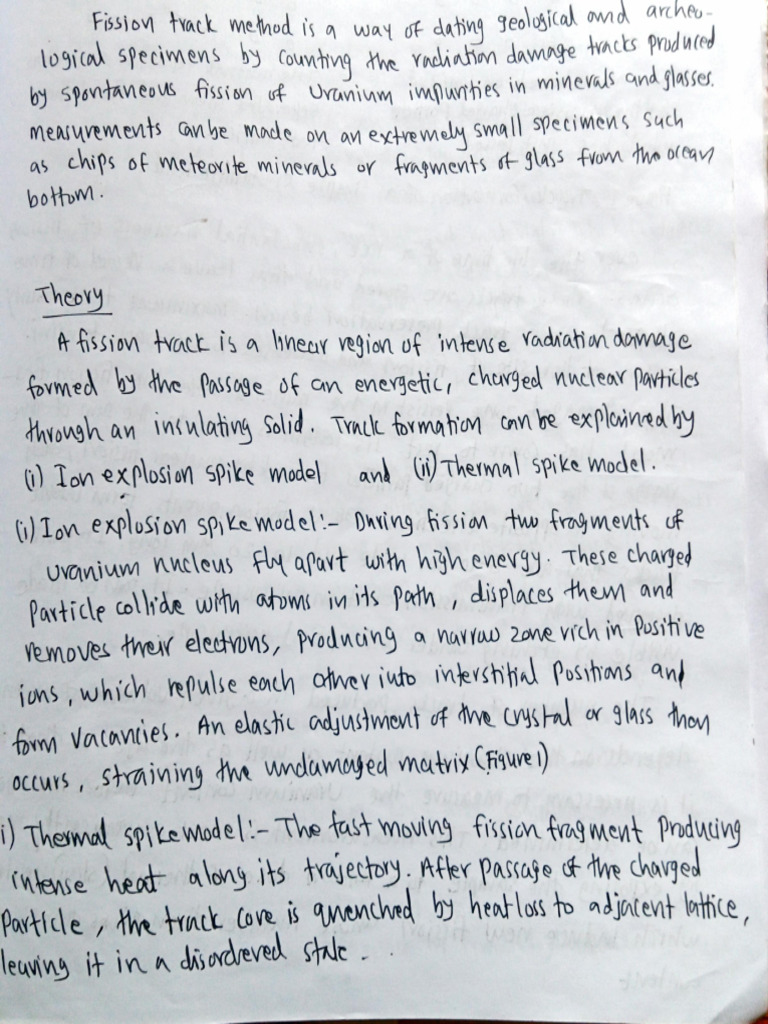 Fission track method is a way of dating geological and archeo-
logical specimens by counting the radiation damage tracks produced
by spontaneous fission of Uranium impunties in minerals and glasses.
measurements can be made on an extremely small specimens such
as chips of meteorite minerals or fragments of glass from the ocean
bottom.
Theory
A fission track is a linear region of intense radiation damage
formed by the passage of an energetic, charged nuclear particles
through an insulating solid. Track formation can be explained by
(i) Ion explosion spike model and (ii) Thermal spike model.
(i) Ion explosion spike model:- During fission two fragments of
uranium nucleus fly apart with high energy. These charged
particle collide with atoms in its path, displaces them and
removes their electrons, producing a narrow zone rich in positive
ions, which repulse each other into interstitial positions and
form vacancies. An elastic adjustment of the crystal or glass then
occurs, straining the undamaged matrix (Figure 1)
i) Thermal spike model:- The fast moving fission fragment producing
intense heat along its trajectory. After passage of the charged
particle, the track core is quenched by heat loss to adjacent lattice,
leaving it in a disordered state.